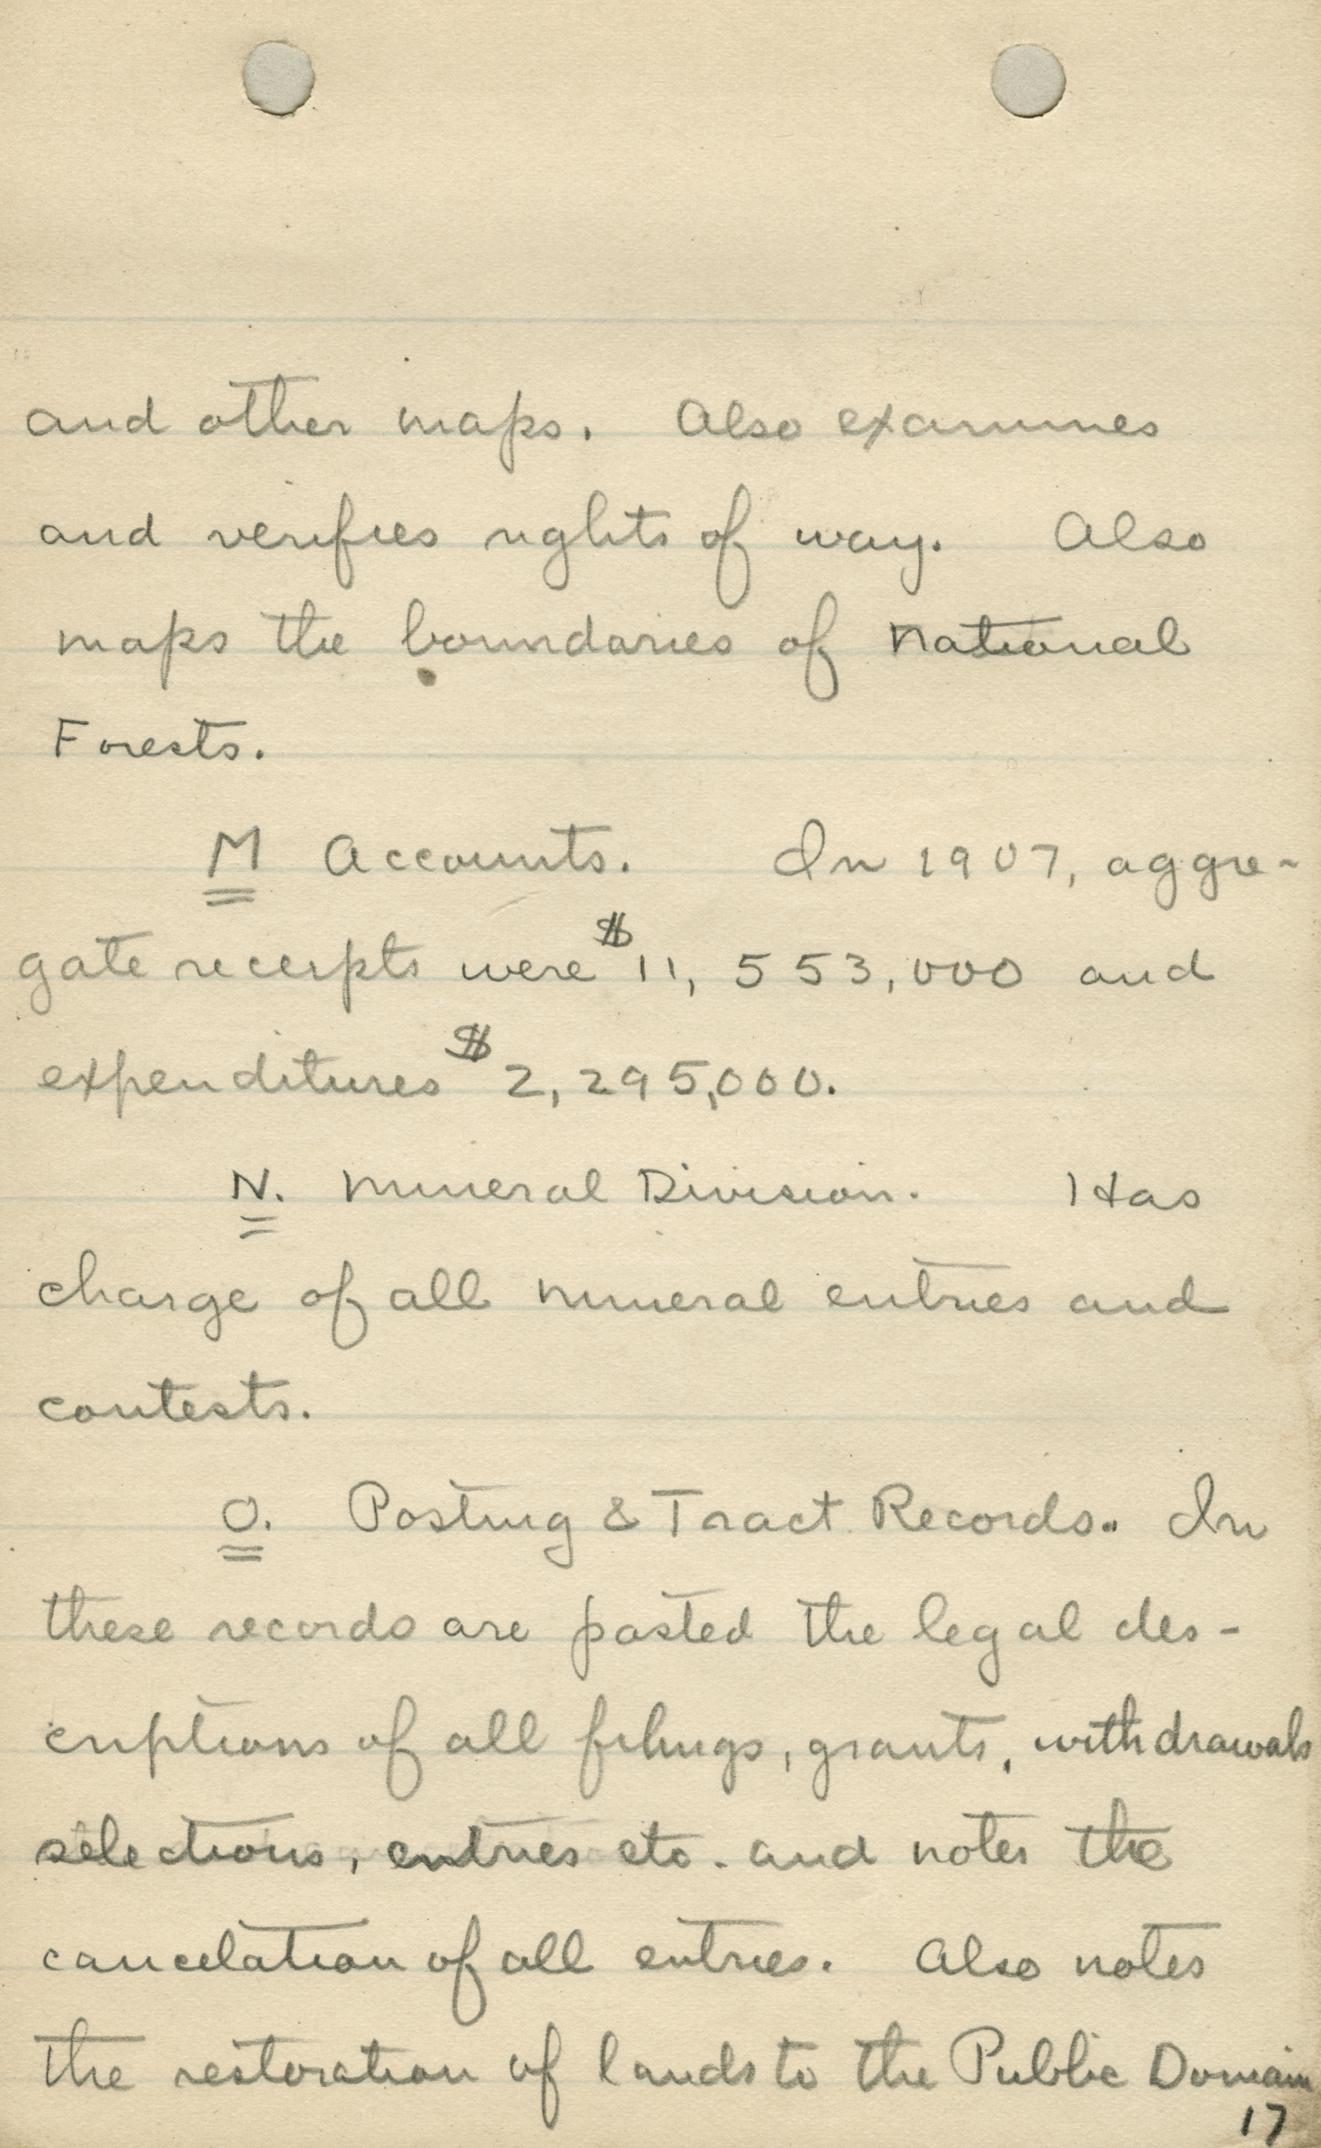 and other maps. Also examines
and verifies rights of way. Also
maps the boundaries of National
Forests.
M Accounts. In 1907, aggre-
gate receipts were $11,553,000 and
expenditures $2,295,000.
N. Mineral Division. Has
charge of all mineral entries and
contests.
O. Posting & Tract Records. In
these records are posted the legal des-
criptions of all filings, grants, withdrawals
selections, entries etc. and notes the
cancelation of all entries. Also notes
the restoration of lands to the Public Domain
17